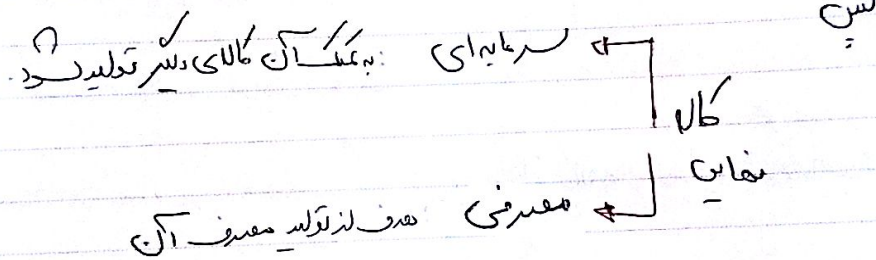 پس
سرمایه‌ای : به کمک آن کالای دیگر تولید شود.
کالا
نهایی
مصرفی هدف از تولید مصرف آن